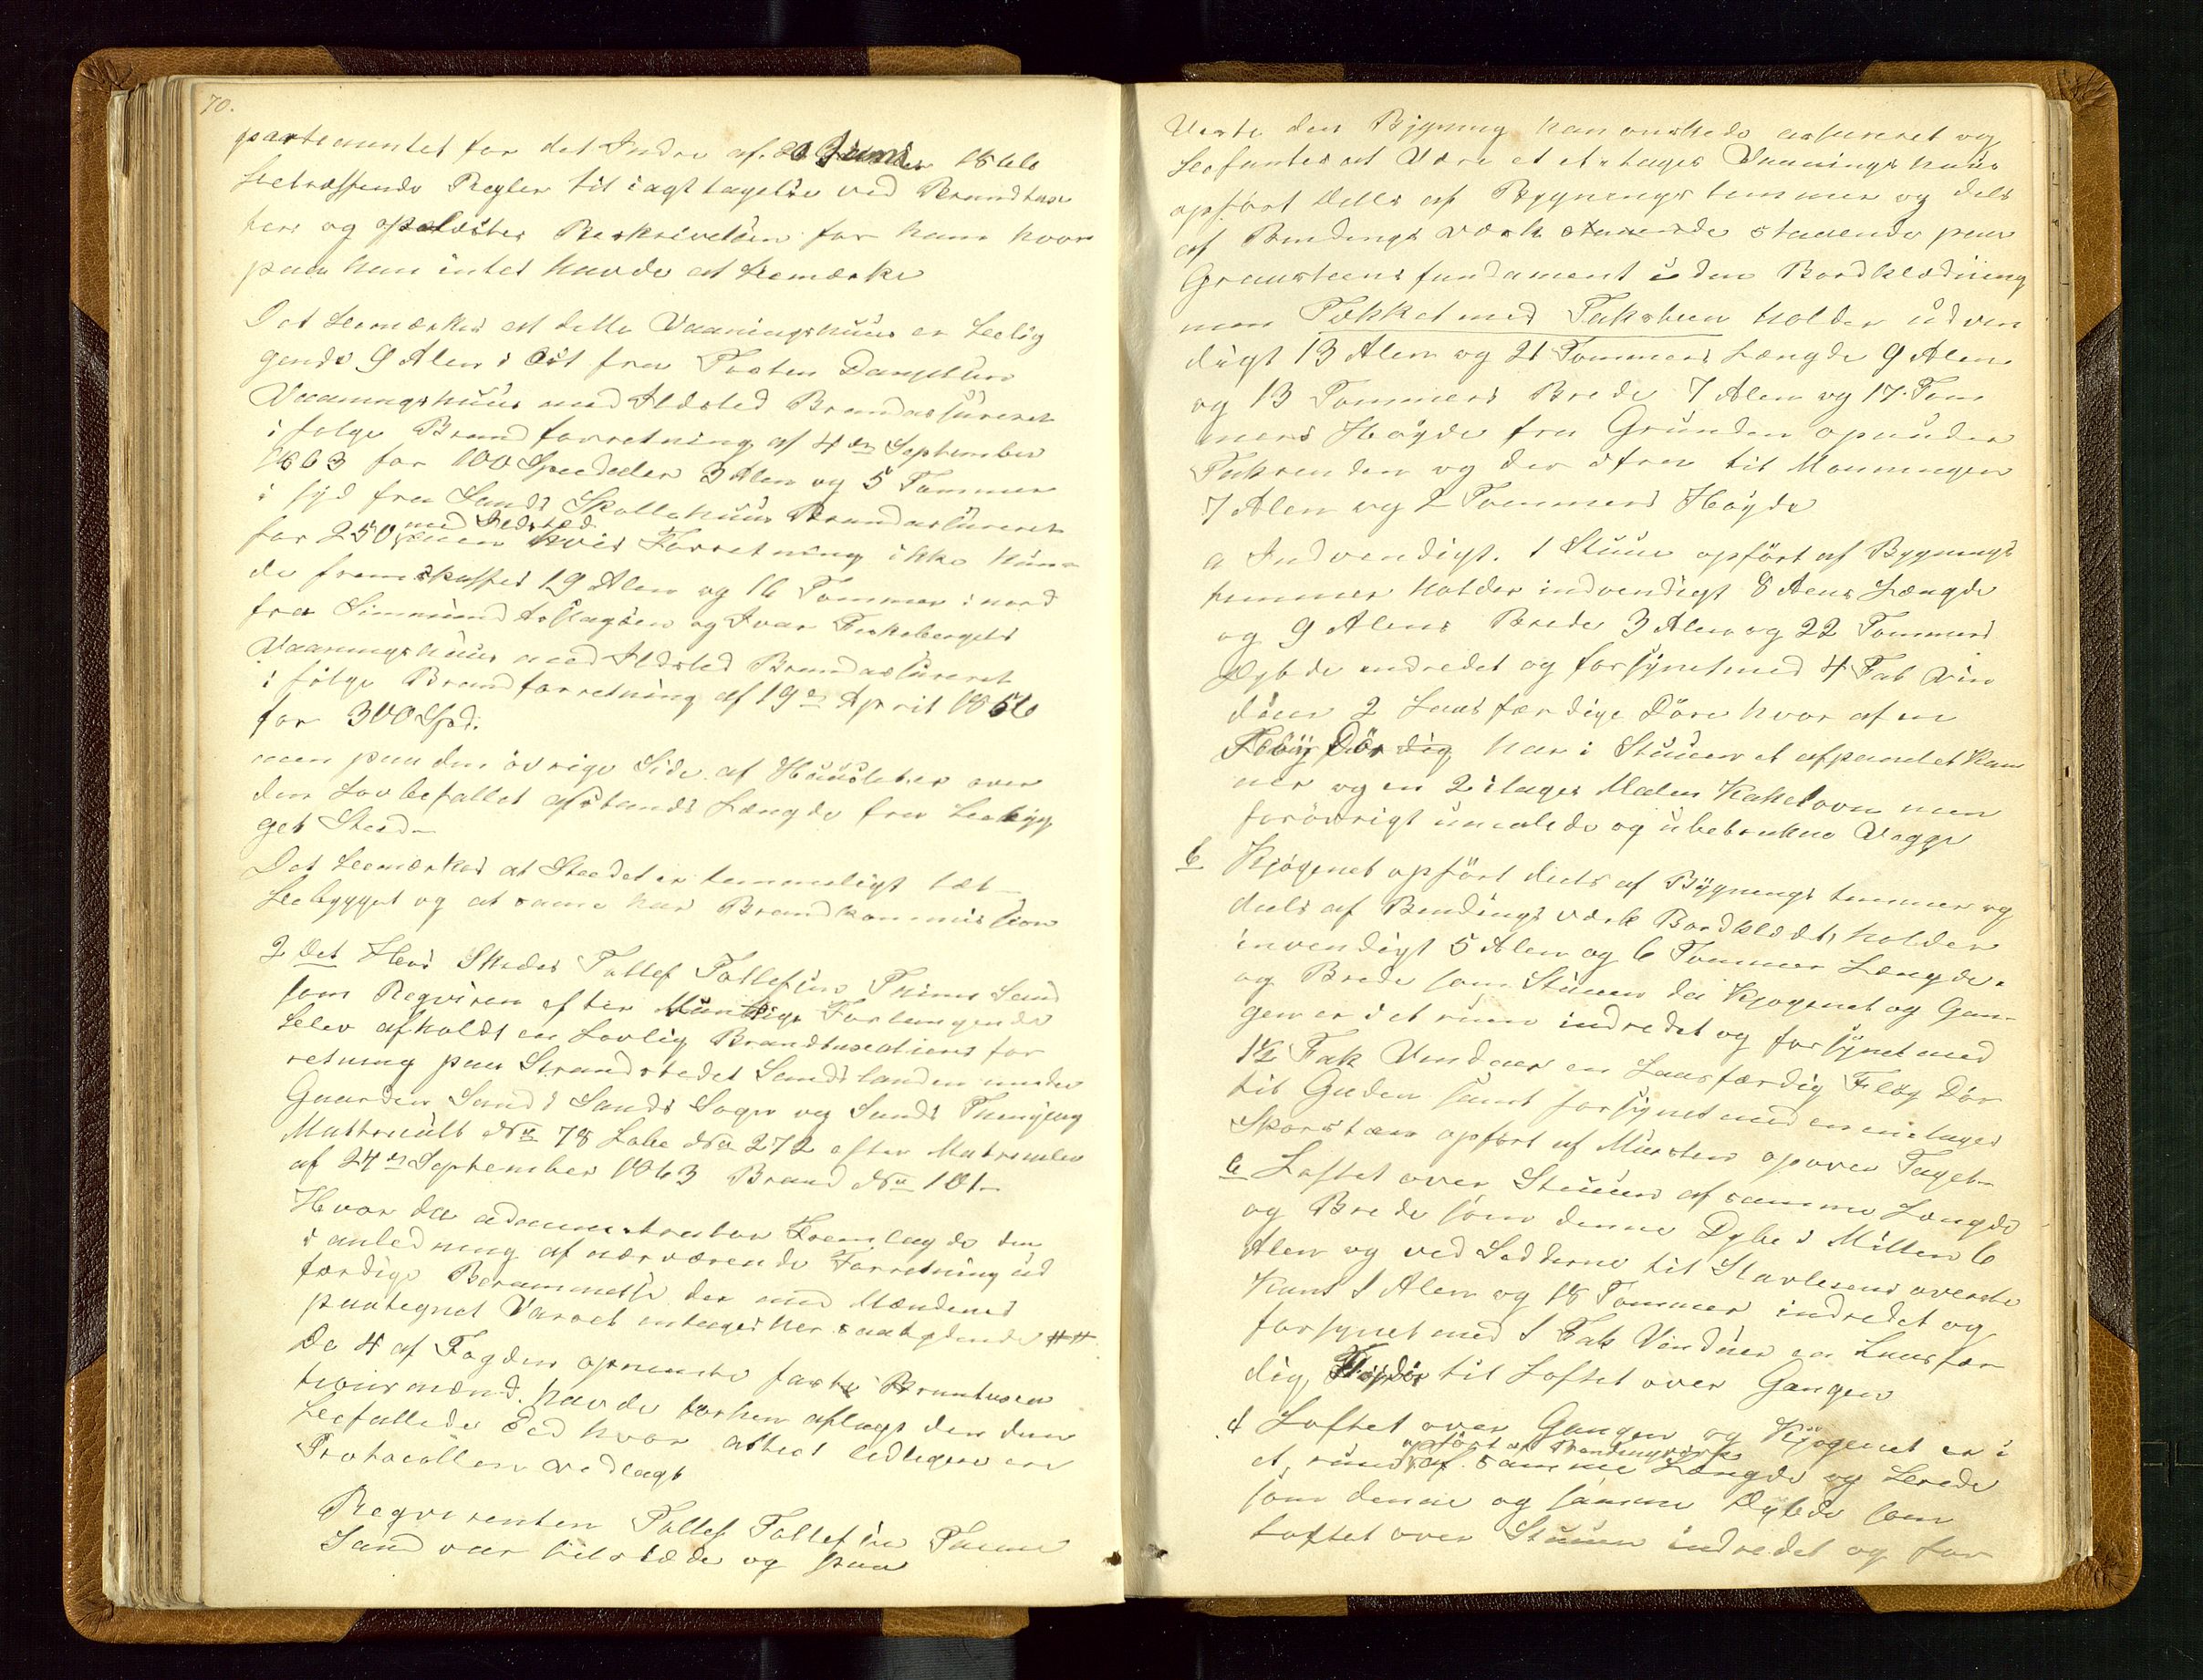 70.
partementet for det Indre af 20 Juni 1866
betræffende Regler til iagttagelse ved Brandtaxa
ter og oplæstes Beskrivelsen for ham hvor
paa han intet havde at bemærke
Det bemærkes at dette Vaaningshuus er belig
gende 9 Alen i Øst fra Torsten
Vaaningshuus med Ildsted Brandassureret
i følge Brandforretning af 4de September
1863 for 100 Specidaler 3 Alen og 5 Tommer
i syd fra Sands Skollehuus Brandassureret
med Ildsted
for 250, men hvis Forretning ikke kun
de fremskaffes 19 Alen og 16 Tommer i nord
fra Simmund Aslagsen og Ivar
Vaaningshuus med Ildsted Brandassureret
i følge Brandforretning af 19de April 1856
for 300 Spd.
men paa den øvrige Side af Huuset er over
den Lovbefallet afstands Længde fra bebyg
get Sted
Det bemærkes at Stædet er temmeligt tæt
bebygget og at samme har Brandkommission
2 det Huus Tollef Tollefsen Sand
som Reqvirent efter Muntlige Forlangende
blev afholdt en Lovlig Brandtaxations for
retning paa Strandstedet Sandslanden under
Gaarden Sand i Sands Sogn og Sands Thinglag
Mattrikult No 78 Løbe No 272 efter Matrikulen
af 24de September 1863 Brand No 101
Hvor da administrator Fremlagde den
i anledning af nærværende Forretning ud
færdige Berammelse der med Mændenes
paategnet Varsel indtages her saalydende ##
De 4 af Fogden opnævnte faste Brantaxa
tions mænd havde forhen aflagt den dem
befallede Eed hvor attest tidligere er
Protocollen vedlagt
Reqvirenten Tollef Tollefsen
Sand var tilstæde og paa
Viste den Bygning han ønskede assureret og
befantes at Være et et-etages Vaaningshuus
opført dels af Bygningstømmer og dels
af Bindings værk staaende paa
Graasteens fundament uden Bordklædning
men Tækket med Taksteen holder udven
digt 13 Alen og 21 Tommers Længde 9 Alen
og 13 Tommers Brede 7 Alen og 17 Tom
mers Høyde fra Grunden op under
Takrenden og der ifra til Mønningen
7 Alen og 2 Tommers Høyde
a Indvendigt. 1 Stuue opført af Bygnings
tømmer holder indvendigt 8 Alens Længde
og 9 Alens Brede 3 Alen og 22 Tommers
Dybde indredet og forsynet med 4 Fab Vin
duer 2 Laas færdige Døre hvor af en
Fløy Dør har i Stuuen et afpanelet Kam
mer og en 2 etages Malm Kakelovn men
forøvrigt umalede og ubetrukne Vegge
b Kjøgenet opført deels af Bygnings tømmer og
deels af Bendings værk Bordklædt, holder
invendigt 5 Alen og 6 Tommer Længde
og Brede som Stuuen da Kjøgenet og Gan
gen er i et rum indredet og forsynet med
1½ Fak Vinduer en Laasfærdig Fløy Dør
til Gaden samt forsynet med en en-etages
Skorsteen opført af Mursten op over Taget
c Loftet over Stuuen af samme Længde
og Brede som denne Dybe i Mitten 6
Alen og ved Sidderne til Stavlerens øverste
Kant 1 Alen og 18 Tommer indredet og
forsynet med 1 Fak Vinduer en Laasfær
dig Fløydør til Loftet over Gangen
d Loftet over Gangen og Kjøgenet er i
opført af Bendingsværk
et rum af samme Længde og brede
som denne og samme Dybde som
Loftet over Stuuen indredet og for